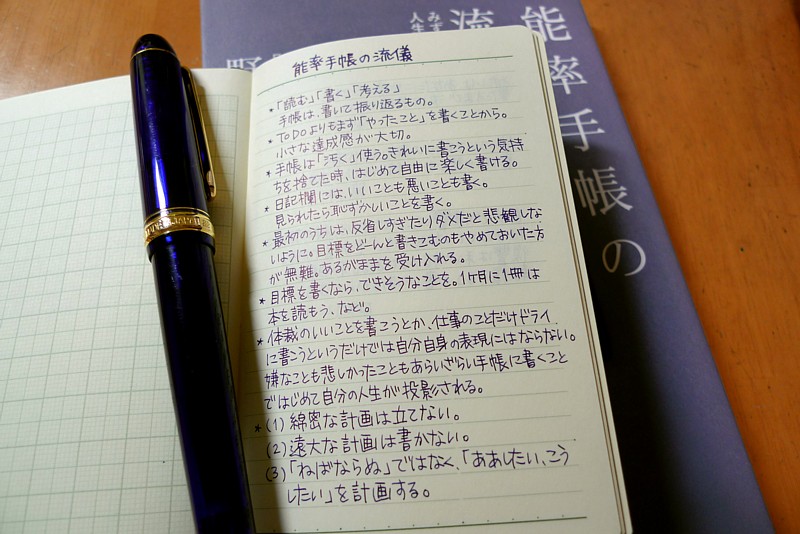 能率手帳の流儀
*「読む」「書く」「考える」
手帳は、書いて振り返るもの。
*TODOよりもまず「やったこと」を書くことから。
小さな達成感が大切。
*手帳は「汚く」使う。きれいに書こうという気持
ちを捨てた時、はじめて自由に楽しく書ける。
*日記欄には、いいことも悪いことも書く。
見られたら恥ずかしいことを書く。
*最初のうちは、反省しすぎたりダメだと悲観しな
いように。目標をどーんと書きこむのもやめておいた方
が無難。あるがままを受け入れる。
*目標を書くなら、できそうなことを。1ヶ月に1冊は
本を読もう、など。
*体裁のいいことを書こうとか、仕事のことだけドライ
に書こうというだけでは自分自身の表現にはならない。
嫌なことも悲しかったこともあらいざらい手帳に書くこと
ではじめて自分の人生が投影される。
*(1)綿密な計画は立てない。
(2)遠大な計画は書かない。
(3)「ねばならぬ」ではなく、「ああしたい、こう
したい」を計画する。
能率手帳の
流
みず
人生
野
JAPAN